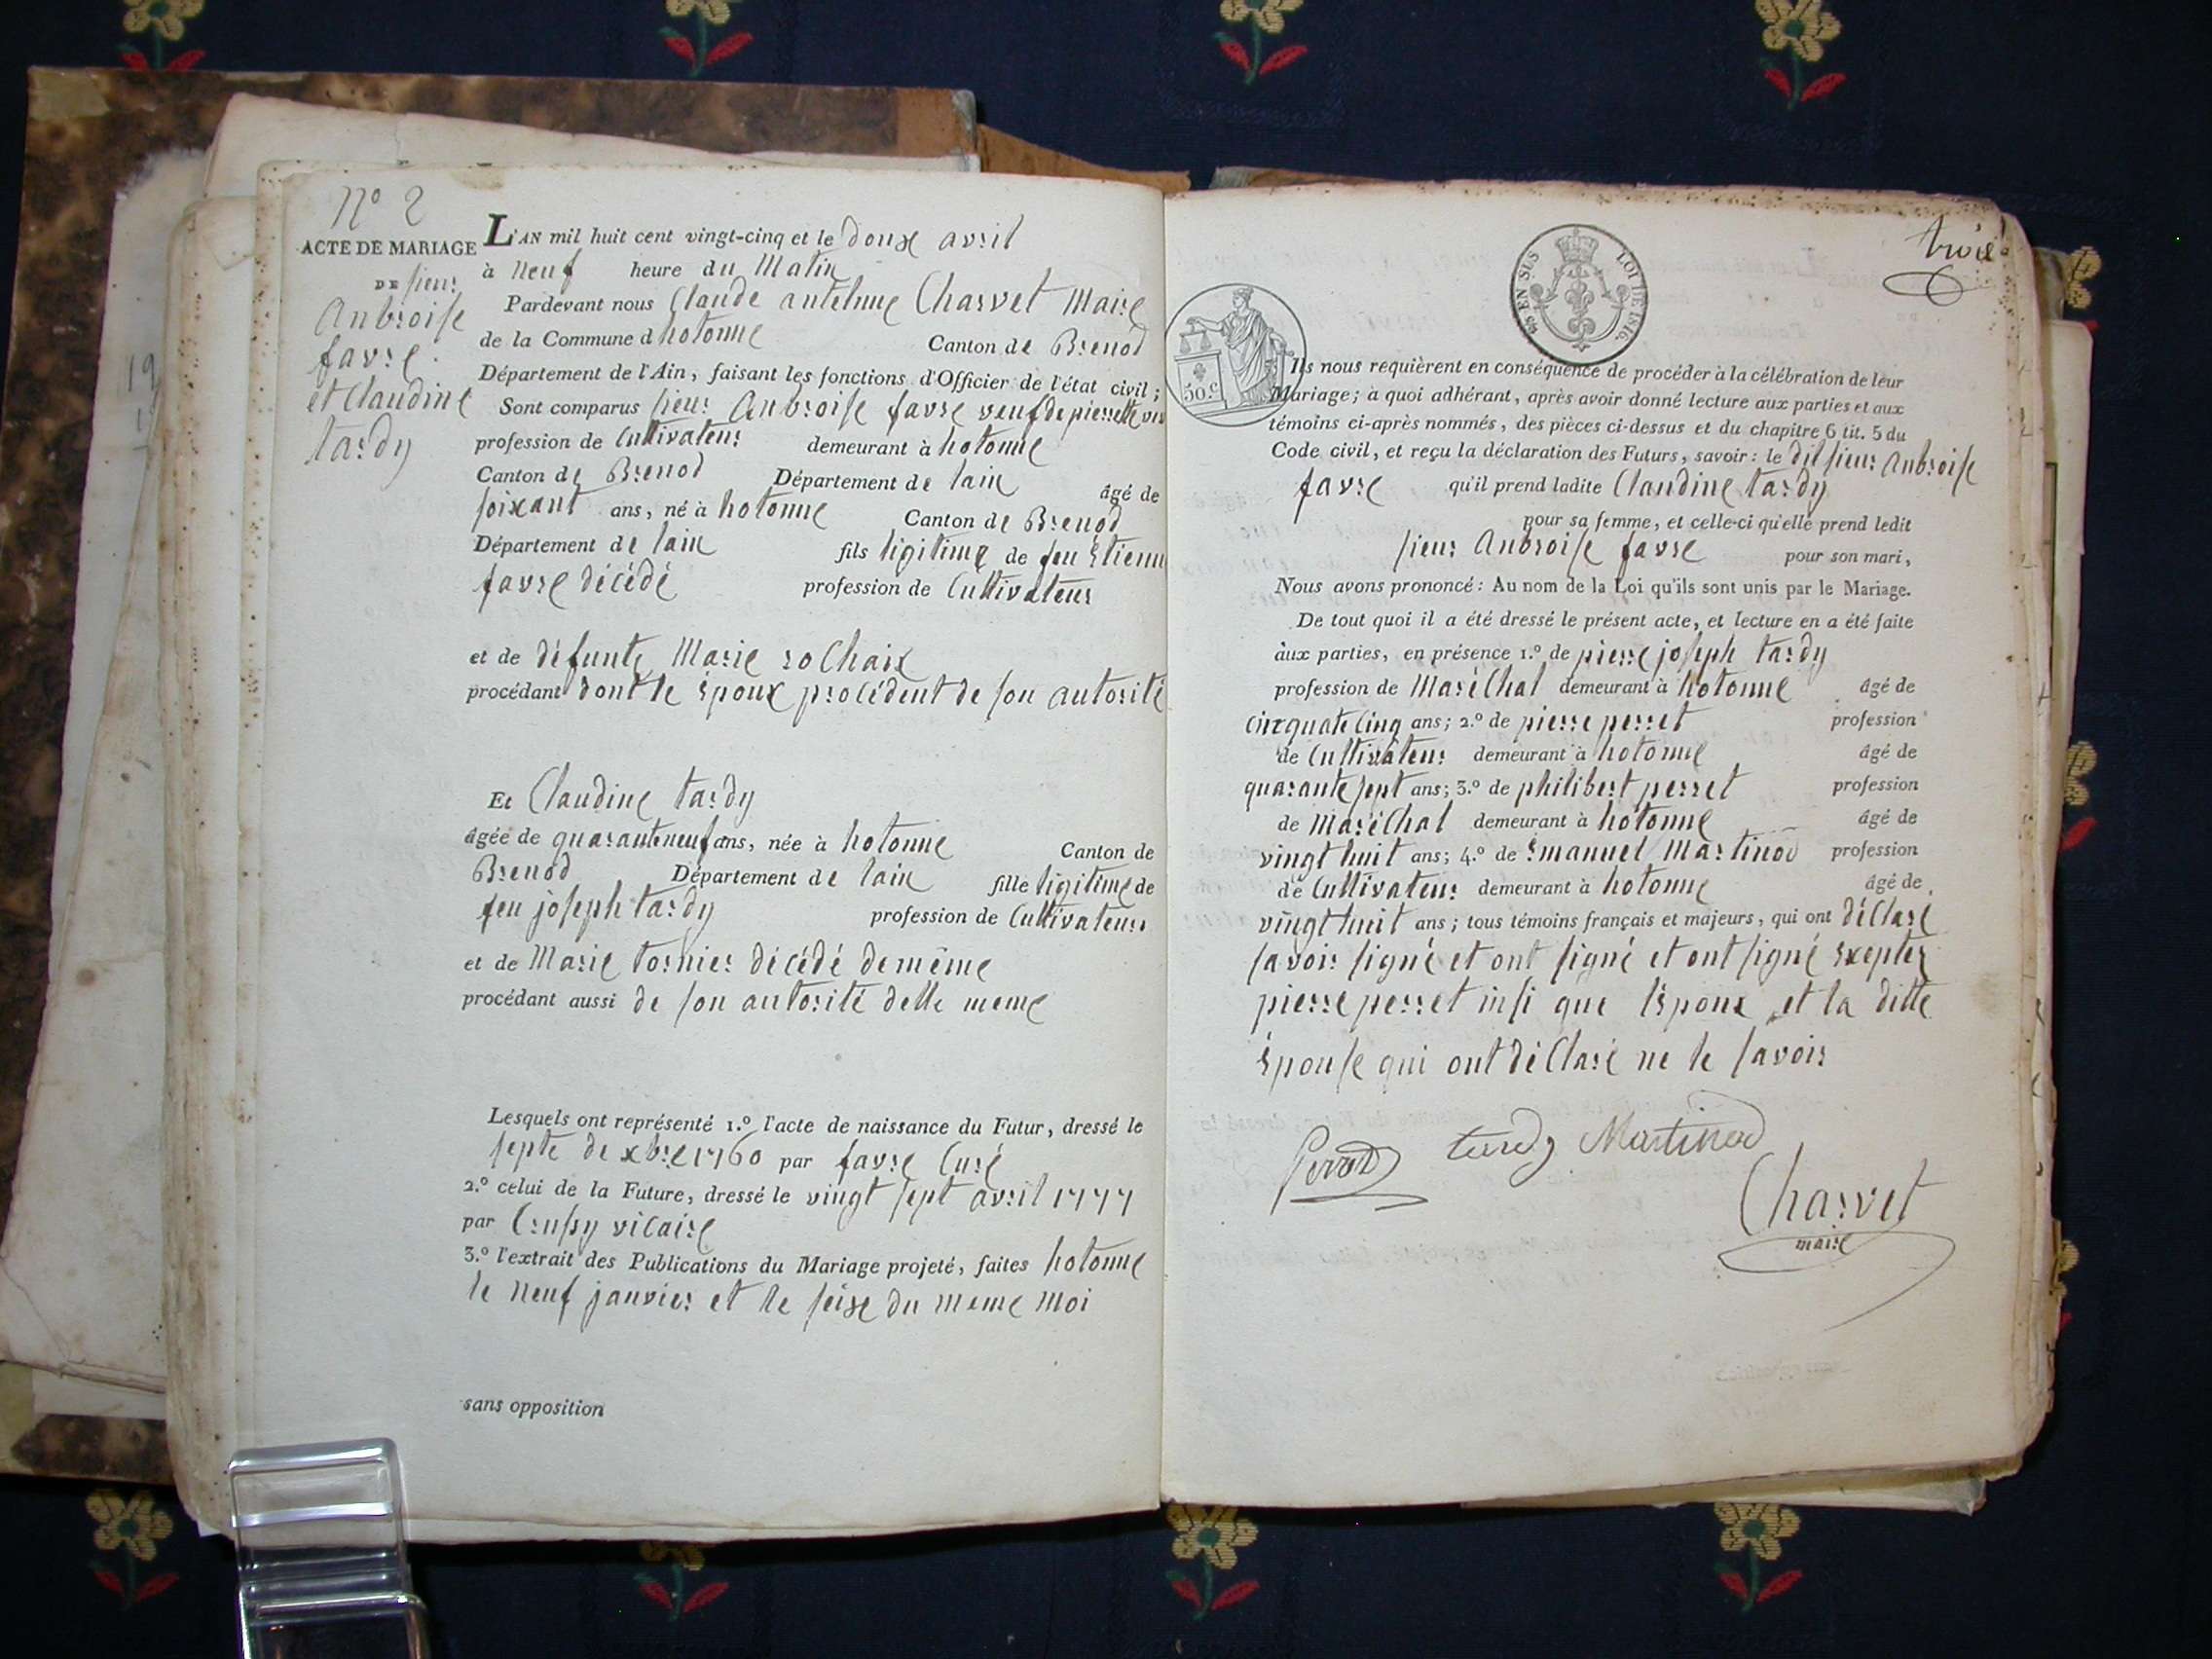 N° 2
ACTE DE MARIAGE
DE sieur
Anbroise
favre
et Claudine
tardy
L'AN mil huit cent vingt-cinq et le douse avril
à neuf heure du Matin
Pardevant nous Claude antelme Charvet Maire
de la Commune d hotonne Canton de Brenod
Département de l'Ain, faisant les fonctions d'Officier de l'état civil;
Sont comparus sieur Anbroise favre veuf de pierrette
profession de Cultivateur demeurant à hotonne
Canton de Brenod Département de lain âgé de
soixant ans, né à hotonne Canton de Brenod
Département de lain fils ligitime de feu Étienn
favre décédé profession de Cultivateur
et de défunte Marie roChaix
procédant dont le époux procédent de son autorité
Et Claudine tardy
âgée de quaranteneuf ans, née à hotonne Canton de
Brenod Département de lain fille ligitime de
feu joseph tardy profession de Cultivateur
et de Marie tornier décédé de même
procédant aussi de son autorité delle meme
Lesquels ont représenté 1.° l'acte de naissance du Futur, dressé le
septe de xbre 1760 par favre Curé
2.° celui de la Future, dressé le vingt sept avril 1777
par vicaire
3.° l'extrait des Publications du Mariage projeté, faites hotonne
le neuf janvier et le seise du meme moi
sans opposition
trois
EN SUS LOI DE 1816.
50 c
Ils nous requièrent en conséquence de procéder à la célébration de leur
Mariage; à quoi adhérant, après avoir donné lecture aux parties et aux
témoins ci-après nommés, des pièces ci-dessus et du chapitre 6 tit. 5 du
Code civil, et reçu la déclaration des Futurs, savoir: le dit sieur Anbroise
favre qu'il prend ladite Claudine tardy
pour sa femme, et celle-ci qu'elle prend ledit
sieur Anbroise favre pour son mari,
Nous avons prononcé: Au nom de la Loi qu'ils sont unis par le Mariage.
De tout quoi il a été dressé le présent acte, et lecture en a été faite
aux parties, en présence 1.° de pierre joseph tardy
profession de MaréChal demeurant à hotonne âgé de
cinrquate cinq ans; 2.° de pierre perret profession
de Cultivateur demeurant à hotonne âgé de
quarante sept ans; 3.° de philibert perret profession
de MaréChal demeurant à hotonne âgé de
vingt huit ans; 4.° de Emanuel Martinod profession
de Cultivateur demeurant à hotonne âgé de
vingt huit ans; tous témoins français et majeurs, qui ont déClaré
savoir signé et ont signé et ont signé exepter
pierre perret insi que l'époux et la ditte
épouse qui ont déClaré ne le savoir
Perret tardy Martinod
Charvet
maire